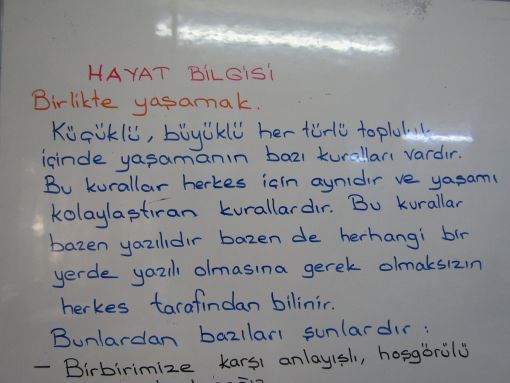 HAYAT BİLGİSİ
Birlikte yaşamak.
Küçüklü, büyüklü her türlü topluluk
içinde yaşamanın bazı kuralları vardır.
Bu kurallar herkes için aynıdır ve yaşamı
kolaylaştıran kurallardır. Bu kurallar
bazen yazılıdır bazen de herhangi bir
yerde yazılı olmasına gerek olmaksızın
herkes tarafından bilinir.
Bunlardan bazıları şunlardır :
- Birbirimize karşı anlayışlı, hoşgörülü